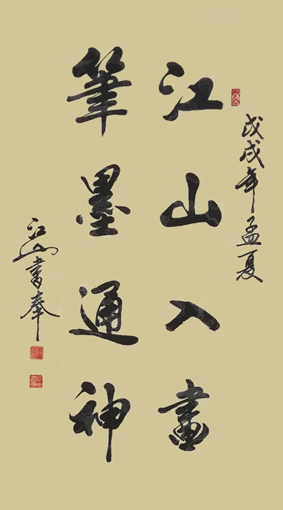 戊戌年孟夏
江山入畫
筆墨通神
江山書奉